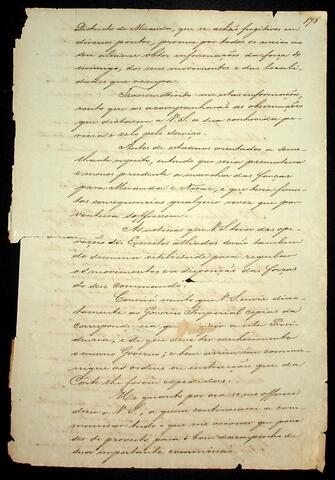 178
Districto de Miranda, que se achão fugitivos em
diversos pontos, procure por todos os meios ao
seu alcance obter informações da força do
inimigo, dos seus movimentos e das locali-
dades que occupa.
Transmittindo-me estas informações,
conto que as acompanhará das observações
que dictarem a V. S. a sua conhecida pe-
ricia e zelo pelo serviço.
Antes de estarmos orientados a seme-
lhante respeito, entendo que seria prematura
e menos prudente a marcha das forças
para Miranda e Nioac, e que teria funes-
tas consequencias qualquer revez que por-
ventura soffressem.
As noticias que V. S. tiver das ope-
rações dos Exercitos alliados serão tambem
de summa utilidade para regular
os movimentos e a disposição das forças
do seu commando.
Convirá muito que V. S. envie direc-
tamente ao Governo Imperial copias da
correspondencia que dirigir a esta Presi-
dencia, e de que deva ter conhecimento
o mesmo Governo; e bem assim me commu-
nique as ordens ou instrucções que da
Côrte lhe forem expedidas.
He quanto por ora se me offerece
dizer a V. S., a quem continuarei a com-
municar tudo o que me occorrer que possa
ser de proveito para o bom desempenho de
sua importante commissão.